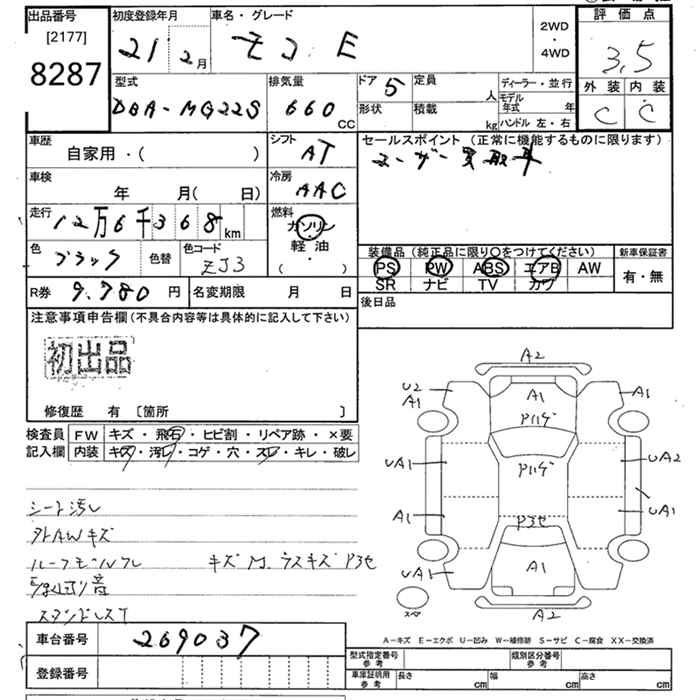 出品番号
[2177]
8287
初度登録年月
21 2月
車名・グレード
モコ E
2WD
・
4WD
評価点
3.5
外装 内装
C C
型式
DBA-MG22S
排気量
660 CC
ドア 5
形状
定員 人
積載 kg
ディーラー・並行
モデル年式 年
ハンドル 左・右
車歴
自家用・( )
シフト
AT
セールスポイント (正常に機能するものに限ります)
ユーザー買取車
車検
年 月( 日)
冷房
AAC
走行
12万6千368km
燃料
ガソリン
・
軽油
( )
色
ブラック
色替
色コード
ZJ3
装備品(純正品に限り〇をつけてください)
PS PW ABS エアB AW
SR ナビ TV カワ
新車保証書
有・無
R券 9.780 円
名変期限 月 日
後日品
注意事項申告欄(不具合内容等は具体的に記入して下さい)
初出品
修復歴 有 〔箇所 〕
検査員
記入欄
FW キズ・飛石・ヒビ割・リペア跡・×要
内装 キズ・汚レ・コゲ・穴・スレ・キレ・破レ
シート汚レ
外AWキズ
ルーフモール
キズM.ラスキズ P3セ
音
A2
U2
A1
A1
A1
P11ゲ
P11ゲ
UA1
UA2
A1
UA1
P3セ
UA1
A1
スペア
A2
A-キズ E-エクボ U-凹み W-補修跡 S-サビ C-腐食 XX-交換済
車台番号
269037
登録番号
型式指定番号
参考
類別区分番号
参考
車庫証明用
参考
長さ cm
幅 cm
高さ cm